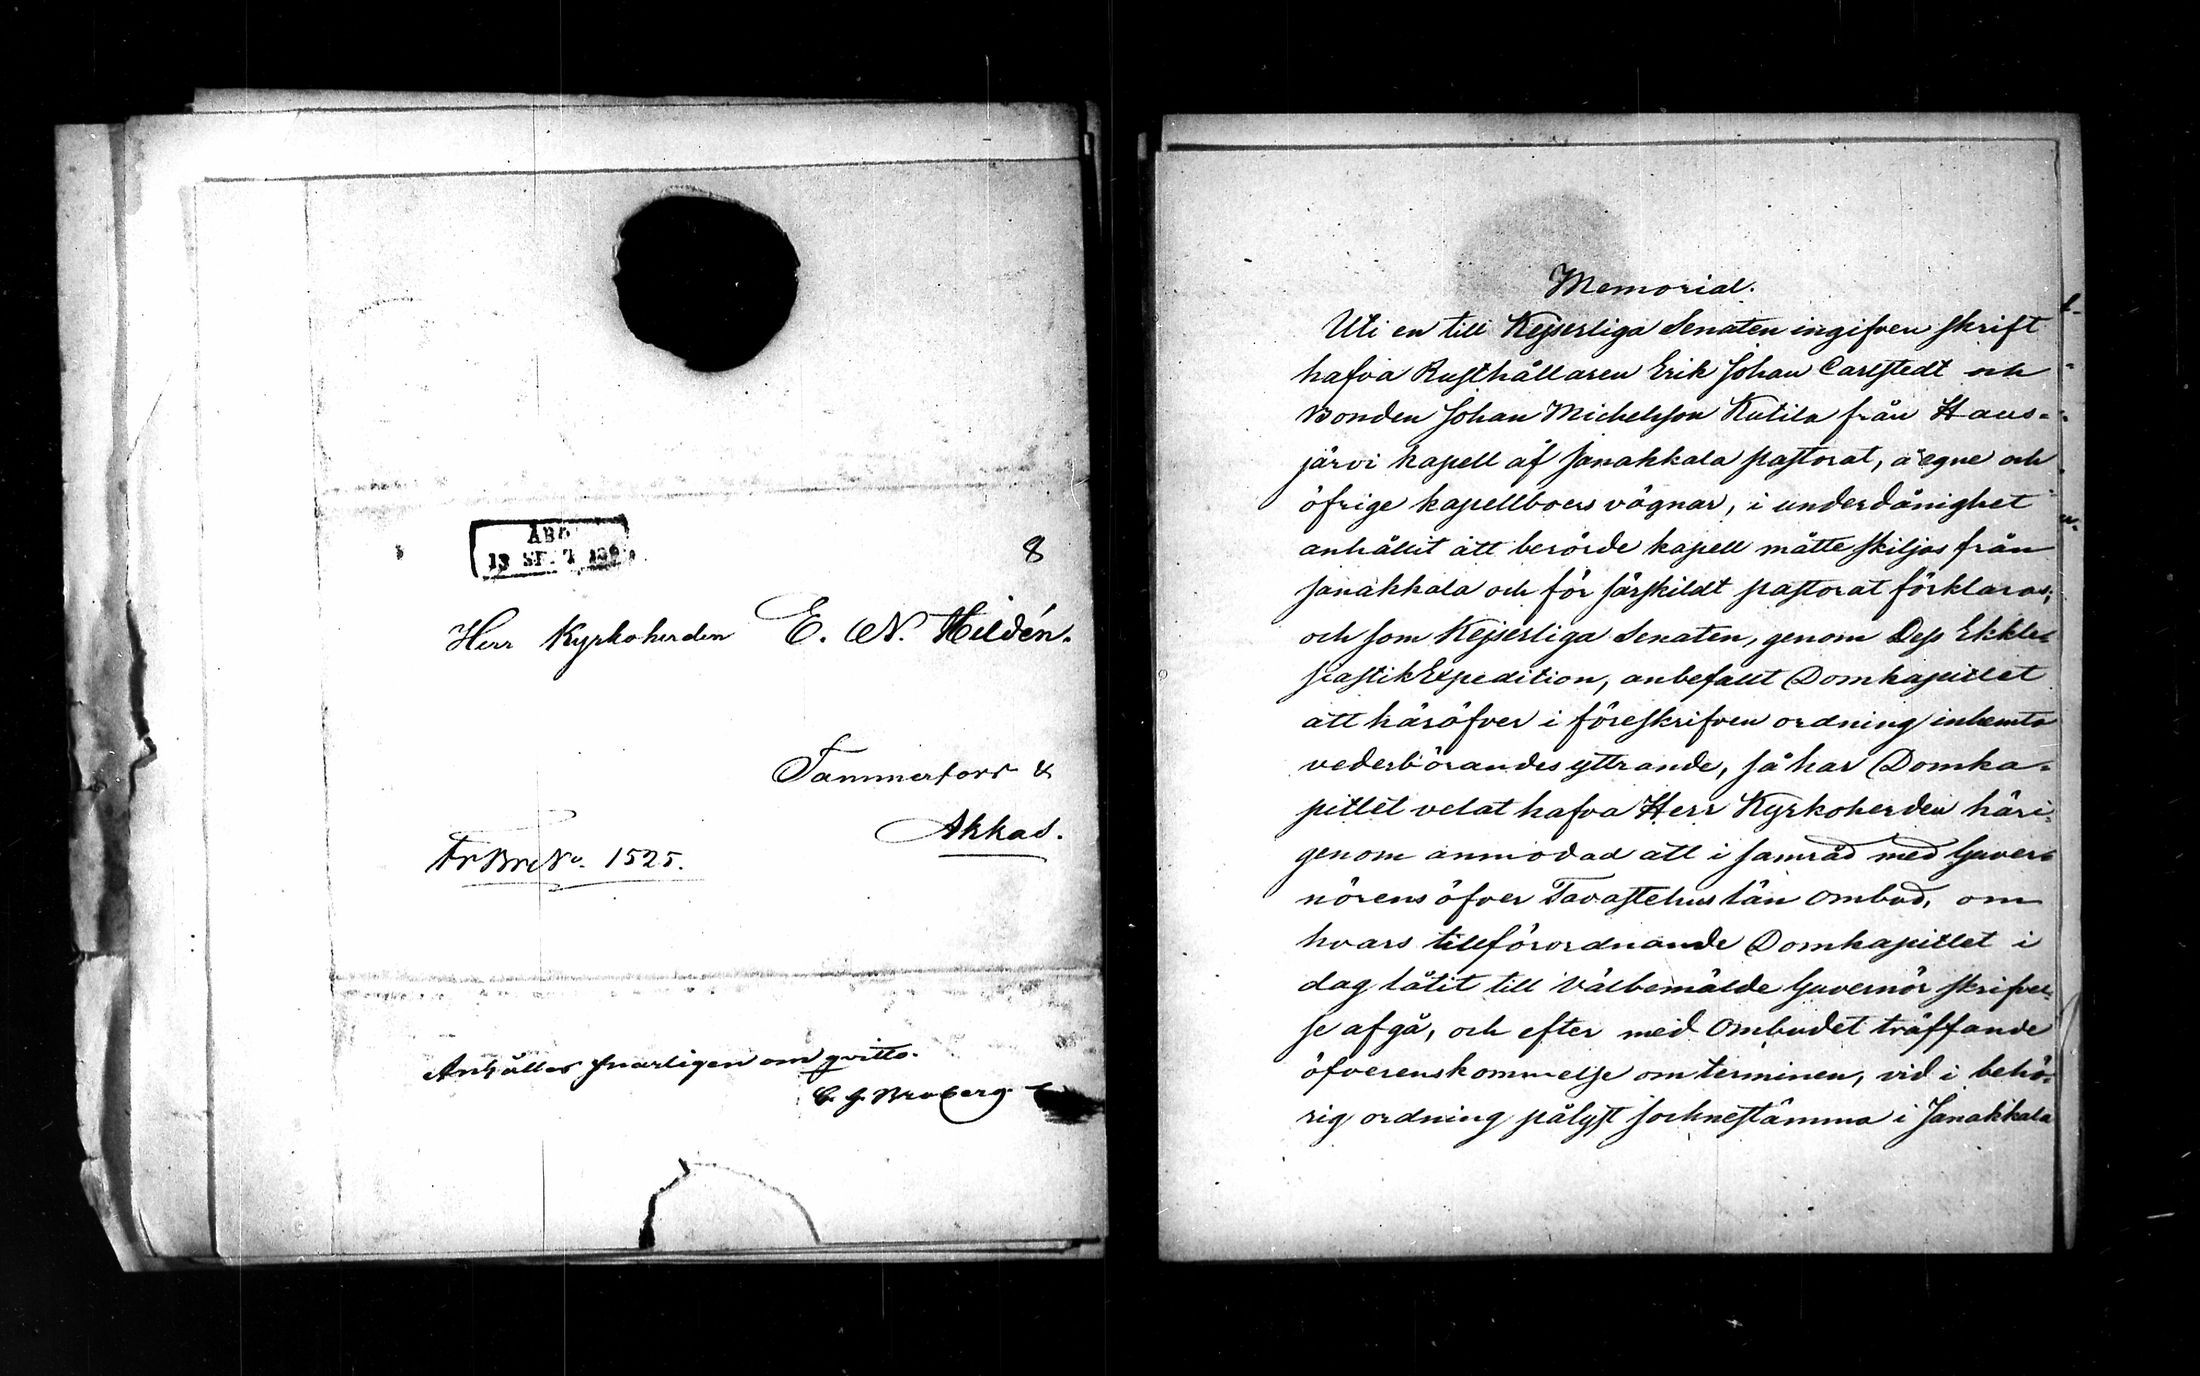 ÅBO
13 SEPT 18
8
Herr Kyrkoherden E. N. Hildén.
Tammerfors &
Akkas.
Fr Bref No. 1525.
Anhålles snarligen om qvitto.
C. G. Broberg
Memorial.
Uti en till Kejserliga Senaten ingifven skrift
hafva Rusthållaren Erik Johan Carlstedt och
Bonden Johan Michelsson Kutila från Haus-
järvi kapell af Janakkala pastorat, å egne och
öfrige kapellboers vägnar, i underdånighet
anhållit att berörde kapell måtte skiljas från
Janakkala och för särskildt pastorat förklaras;
och som Kejserliga Senaten, genom Dess Ekkle-
siastik Expedition, anbefallt Domkapitlet
att häröfver i föreskrifven ordning inhemta
vederbörandes yttrande, så har Domka-
pitlet velat hafva Herr Kyrkoherden häri-
genom anmodad att i samråd med Guver-
nörens öfver Tavastehus län ombud, om
hvars tillförordnande Domkapitlet i
dag låtit till Välbemälde Guvernör skrifvel-
se afgå, och efter med Ombudet träffande
öfverenskommelse om terminen, vid i behö-
rig ordning pålyst socknestämma i Janakkala